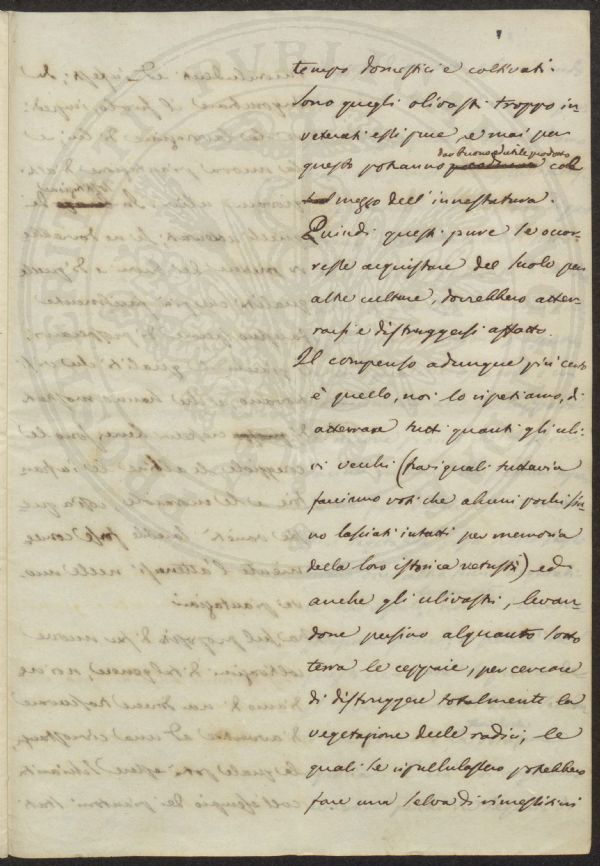 tempo domestici e coltivati.
Sono quegli olivastri troppo in-
veterati essi pure, e mai per
questo potranno dar buono ed utile prodotto col
mezzo dell'innestatura.
Quindi questi pure se occor-
resse acquistare del suolo per
altre culture, dovrebbero atter-
rarsi e distruggersi affatto.
Il compenso adunque più certo
è quello, noi lo ripetiamo, di
atterrare tutti quanti gli uli-
vi vecchi (fra i quali tuttavia
facciamo voti che alcuni pochi sie-
no lasciati intatti per memoria
della loro istorica vetustà) ed
anche gli ulivastri, levan-
done persino alquanto sotto
terra le ceppaie, per cercare
di distruggere totalmente la
vegetazione delle radici, le
quali se ripullulassero potrebbero
fare una selva di rimessiticci